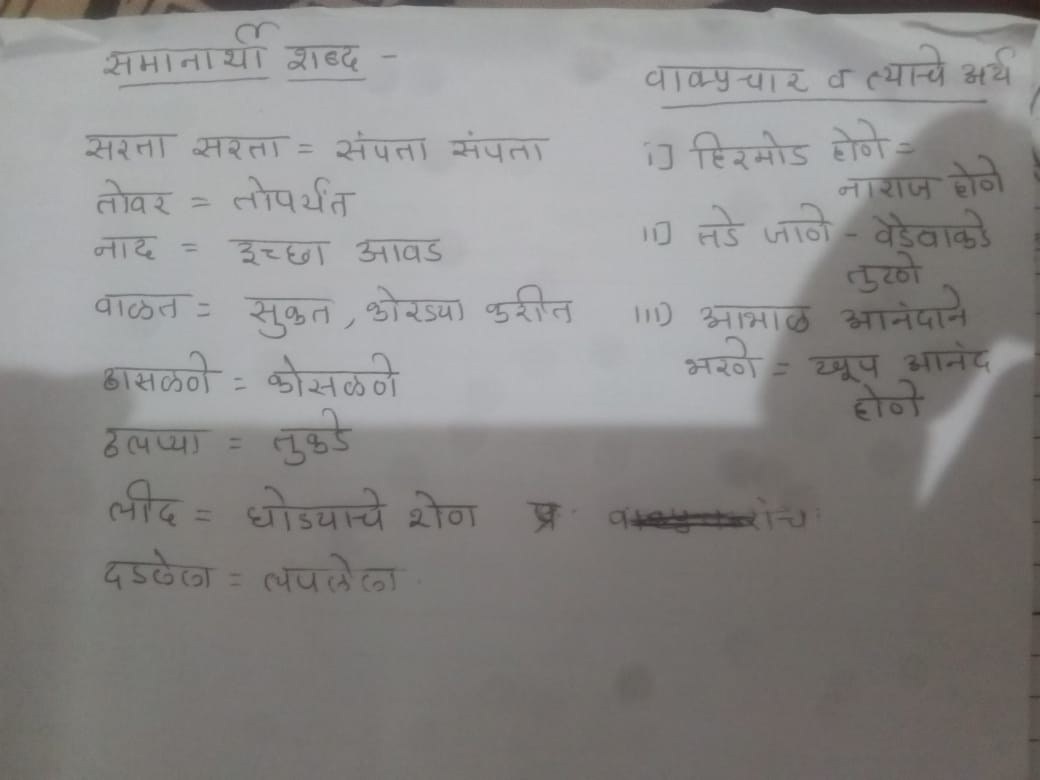 समानार्थी शब्द -
सरता सरता = संपता संपता
तोवर = तोपर्यंत
नाद = इच्छा आवड
वाळत = सुकत, कोरड्या करीत
ढासळणे = कोसळणे
ढलप्या = तुकडे
लीद = घोड्याचे शेण प्र
दडलेला = लपलेला
वाक्प्रचार व त्याचे अर्थ
i] हिरमोड होणे =
नाराज होणे
ii] तडे जाणे - वेडेवाकडे
तुटणे
iii) आभाळ आनंदाने
भरणे = खूप आनंद
होणे